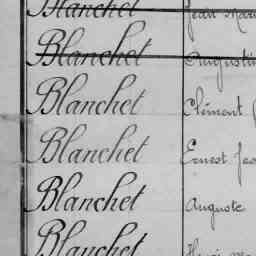 Blanchet Jean Marie
Blanchet Augustin
Blanchet Clément
Blanchet Ernest
Blanchet Auguste
Blanchet Henri